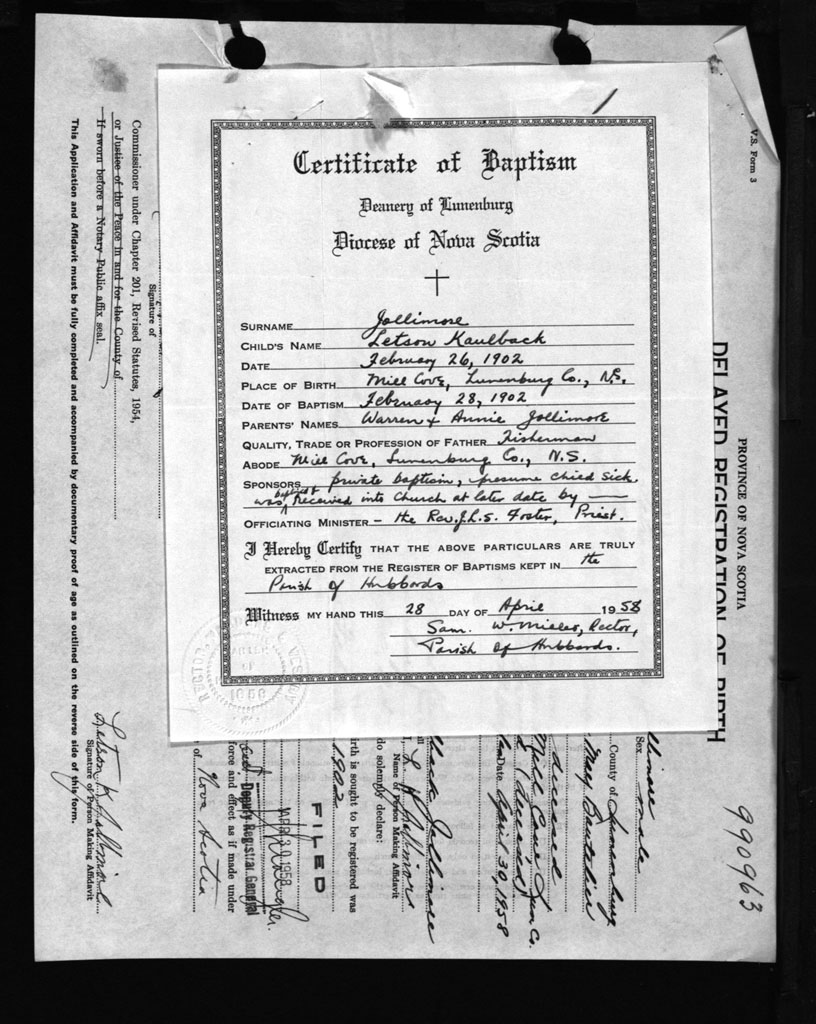 Certificate of Baptism
Deanery of Lunenburg
Diocese of Nova Scotia
SURNAME Jollimore
CHILD'S NAME Letson Kaulback
DATE February 26, 1902
PLACE OF BIRTH Mill Cove, Lunenburg Co., N.S.
DATE OF BAPTISM February 28, 1902
PARENTS' NAMES Warren & Annie Jollimore
QUALITY, TRADE OR PROFESSION OF FATHER Fisherman
ABODE Mill Cove, Lunenburg Co., N.S.
SPONSORS private baptism, presume child sick.
was Received into Church at later date by —
OFFICIATING MINISTER - the Rev. J.L.S. Foster, Priest.
I Hereby Certify THAT THE ABOVE PARTICULARS ARE TRULY
EXTRACTED FROM THE REGISTER OF BAPTISMS KEPT IN the
Parish of Hubbards
Witness MY HAND THIS 28 DAY OF April 1958
Sam. W. Miller, Rector,
Parish of Hubbards.
1958
V.S. Form 3
PROVINCE OF NOVA SCOTIA
DELAYED REGISTRATION OF BIRTH
990963
Sex male
County of Lunenburg
Mary Boutilier
deceased
Mill Cove Lun Co.
(deceased)
Date April 30, 1958
Jollimore
Name of Person Making Affidavit
do solemnly declare:
birth is sought to be registered was
1902
FILED
APR 30 1958
Deputy Registrar General
force and effect as if made under
of Nova Scotia
Signature of
Commissioner under Chapter 201, Revised Statutes, 1954,
or Justice of the Peace in and for the County of
If sworn before a Notary Public affix seal.
Letson K Jollimore
Signature of Person Making Affidavit
This Application and Affidavit must be fully completed and accompanied by documentary proof of age as outlined on the reverse side of this form.